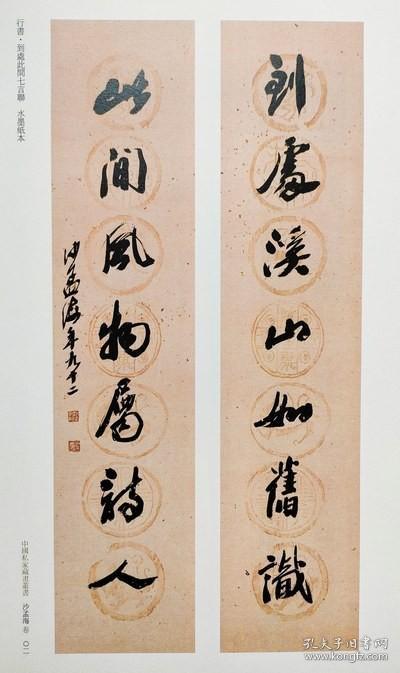 行書·到處此間七言聯 水墨紙本
到處溪山如舊識
此間風物屬詩人
沙孟海年九十二
中國私家藏書畫叢書 沙孟海 卷 〇二一
孔夫子旧书网
kongfz.com